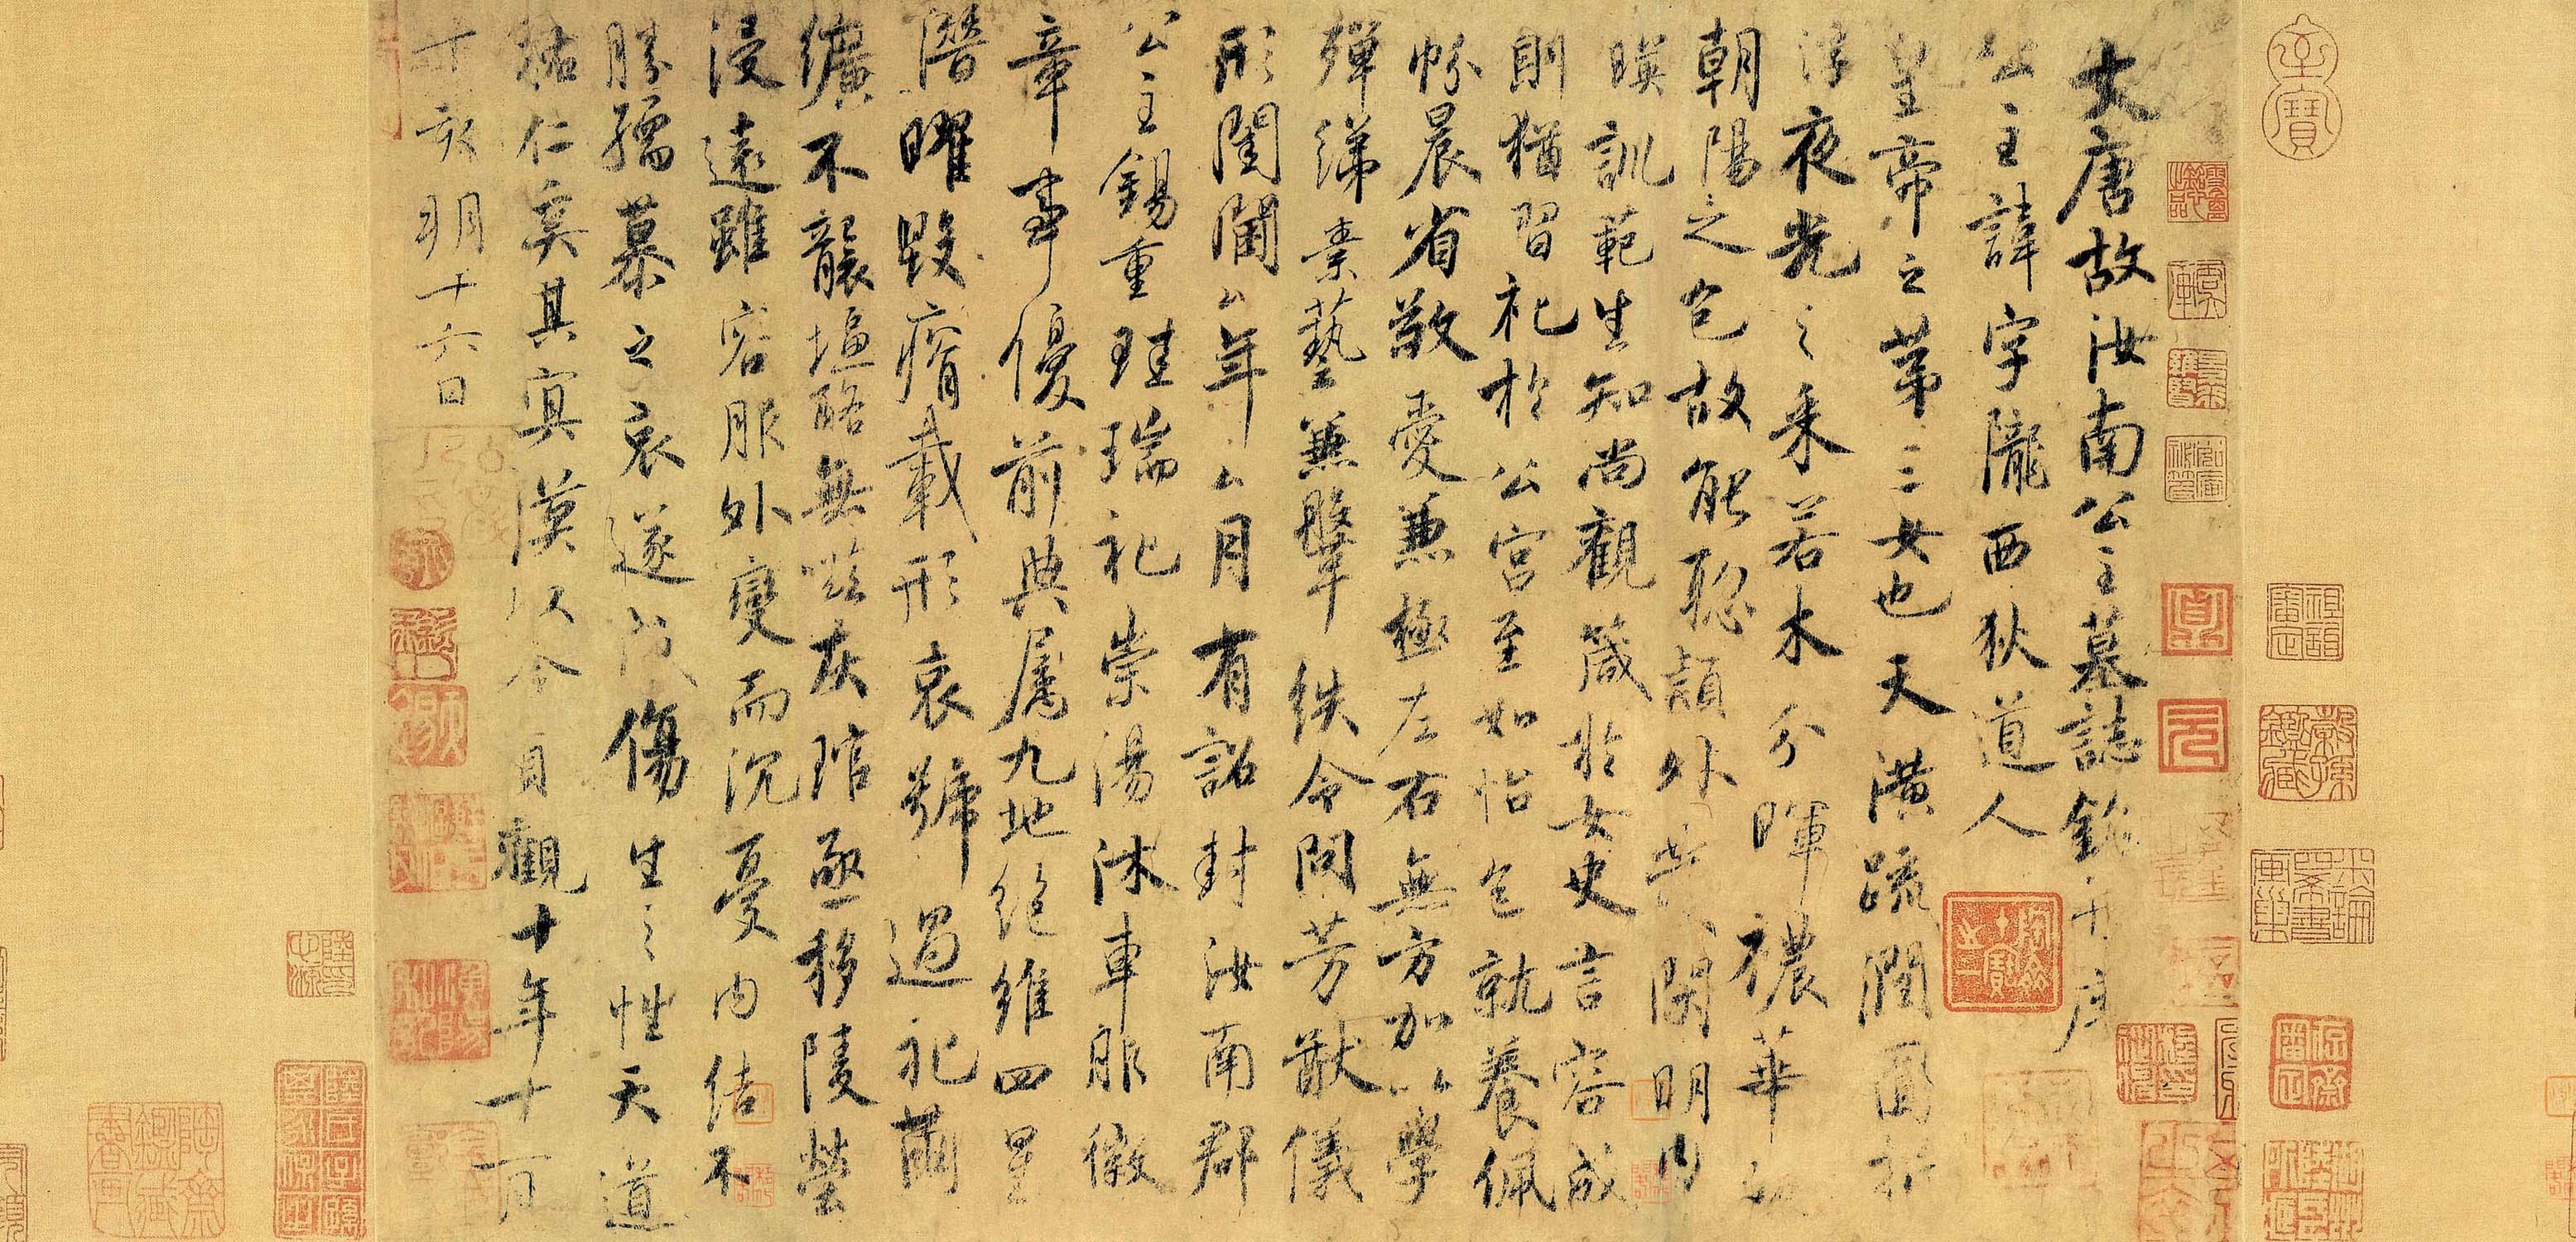 大唐故汝南公主墓誌銘并序
公主諱字隴西狄道人
皇帝之第三女也天潢疏潤圓折
浮夜光之采若木分暉穠華
朝陽之色故能聰穎外閑明內
暎訓範生知尚觀箴於女史言容成
則猶習礼於公宮至如怡色就養佩
帉晨省敬愛兼極左右無方加以學
殫綈素藝兼鞶紩令問芳猷儀
形閨閫厶年厶月有詔封汝南郡
公主錫重珪瑞礼崇湯沐車服徽
章事優前典屬九地絕維四星
潛曜毀瘠載形哀號過礼繭
纊不襲塩酪無嗞灰琯亟移陵塋
浸遠雖容服外變而沉憂內結不
勝孺慕之哀遂成傷生之性天道
祐仁奚其冥漠以今貞觀十年十一月
丁亥朔十六日